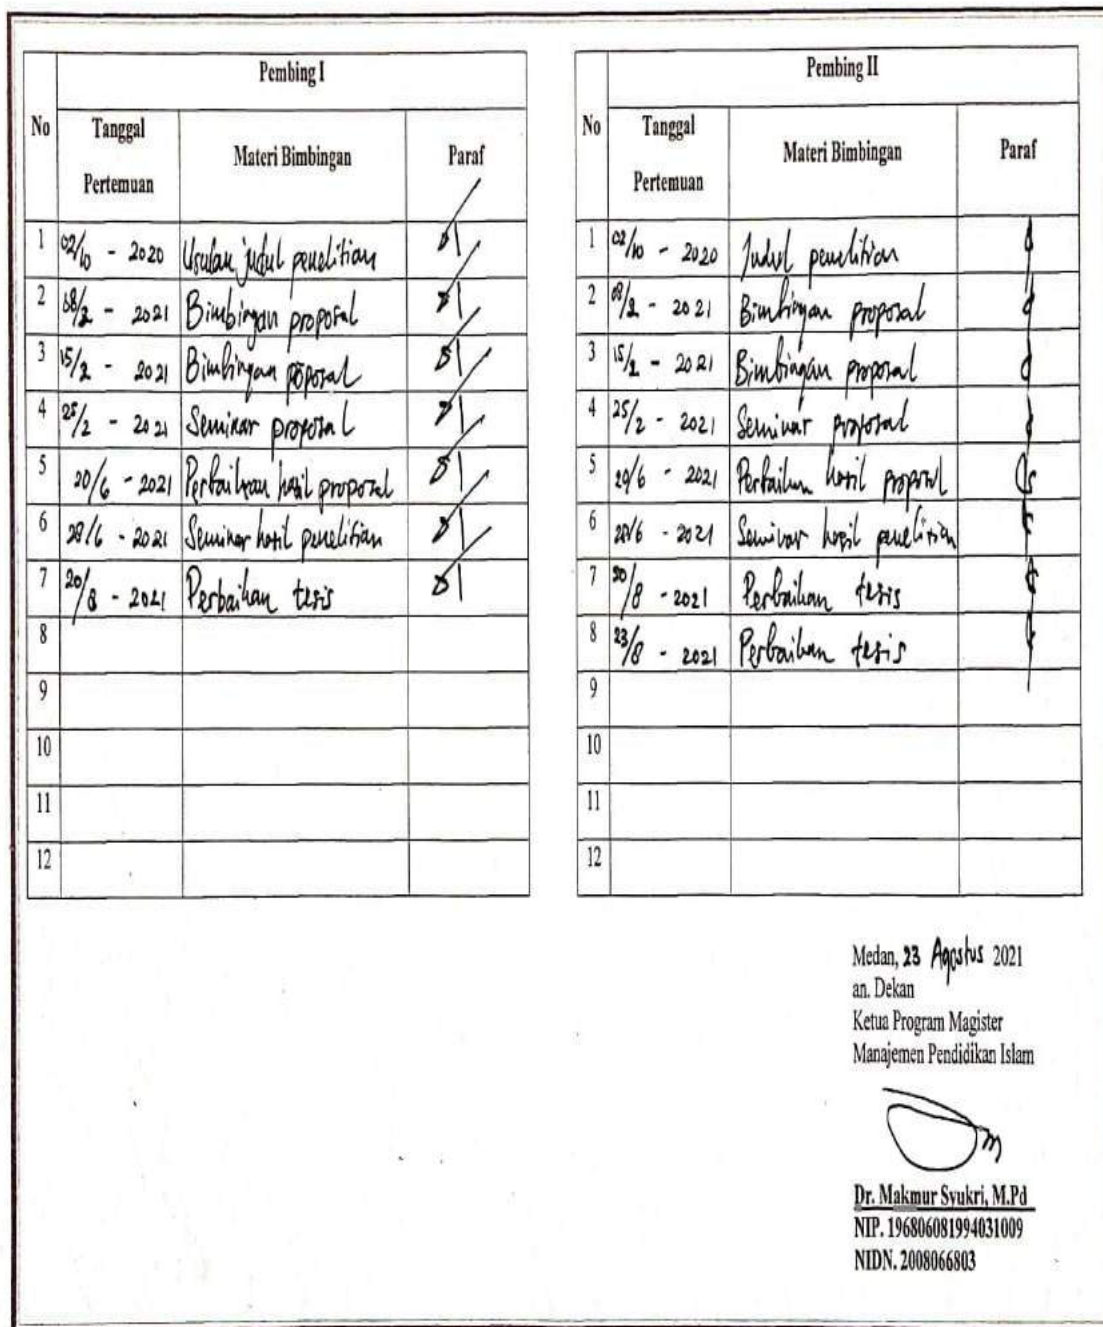 Pembing I
No Tanggal Pertemuan Materi Bimbingan Paraf
1 02/10 - 2020 Usulan judul penelitian
2 08/2 - 2021 Bimbingan proposal
3 15/2 - 2021 Bimbingan poposal
4 25/2 - 2021 Seminar proposal
5 20/6 - 2021 Perbaikan hasil proposal
6 28/6 - 2021 Seminar hasil penelitian
7 20/8 - 2021 Perbaikan tesis
8
9
10
11
12
Pembing II
No Tanggal Pertemuan Materi Bimbingan Paraf
1 02/10 - 2020 Judul penelitian
2 08/2 - 2021 Bimbingan proposal
3 15/2 - 2021 Bimbingan proposal
4 25/2 - 2021 Seminar proposal
5 - 2021 Perbaikan hasil proposal
6 - 2021 Seminar hasil penelitian
7 - 2021 Perbaikan tesis
8 23/8 - 2021 Perbaikan tesis
9
10
11
12
Medan, 23 Agustus 2021
an. Dekan
Ketua Program Magister
Manajemen Pendidikan Islam
Dr. Makmur Syukri, M.Pd
NIP. 196806081994031009
NIDN. 2008066803